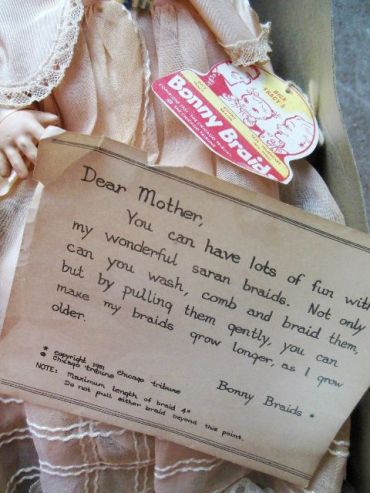 DICK
TRACY'S
Bonny Braids
Dear Mother,
You can have lots of fun with
my wonderful saran braids. Not only
can you wash, comb and braid them,
but by pulling them gently, you can
make my braids grow longer, as I grow
older.
Bonny Braids *
* Copyright 1951 Chicago Tribune
Chicago Tribune
NOTE: Maximum length of braid 4"
Do not pull either braid beyond this point.